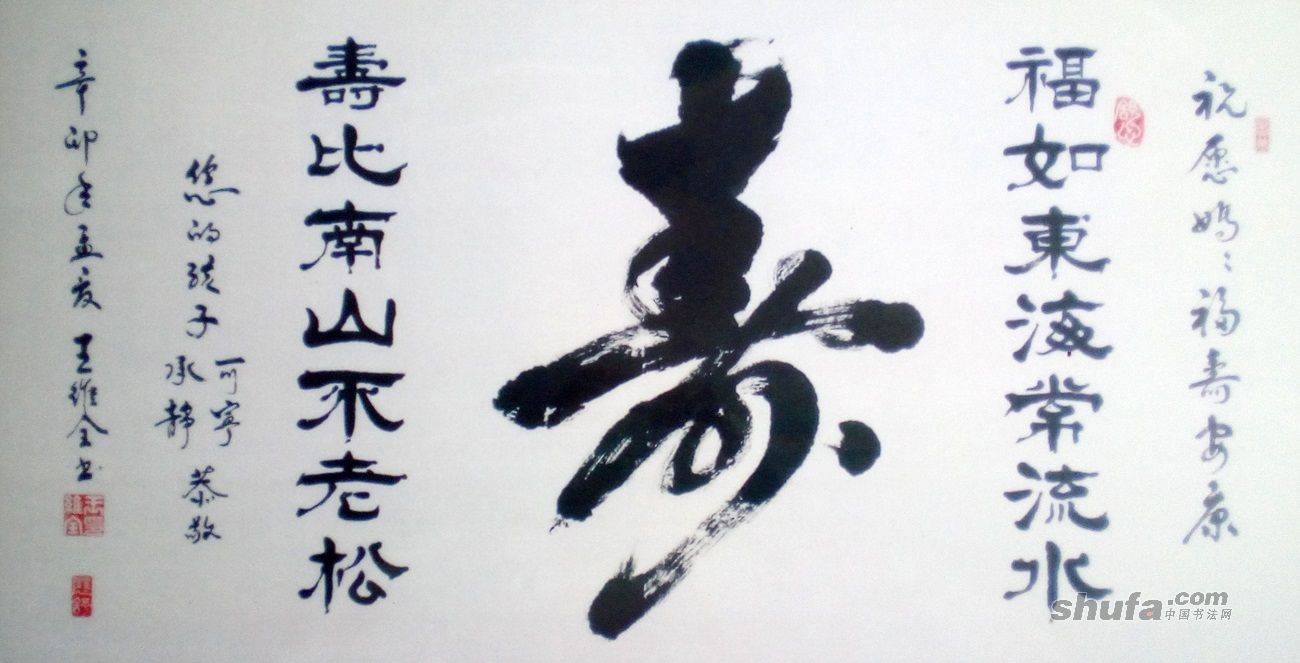 祝愿妈〻福寿安康
福如東海常流水
寿
壽比南山不老松
您的孩子
可宁
承静
恭敬
辛卯年孟夏 王維全书
shufa.com
中国书法网